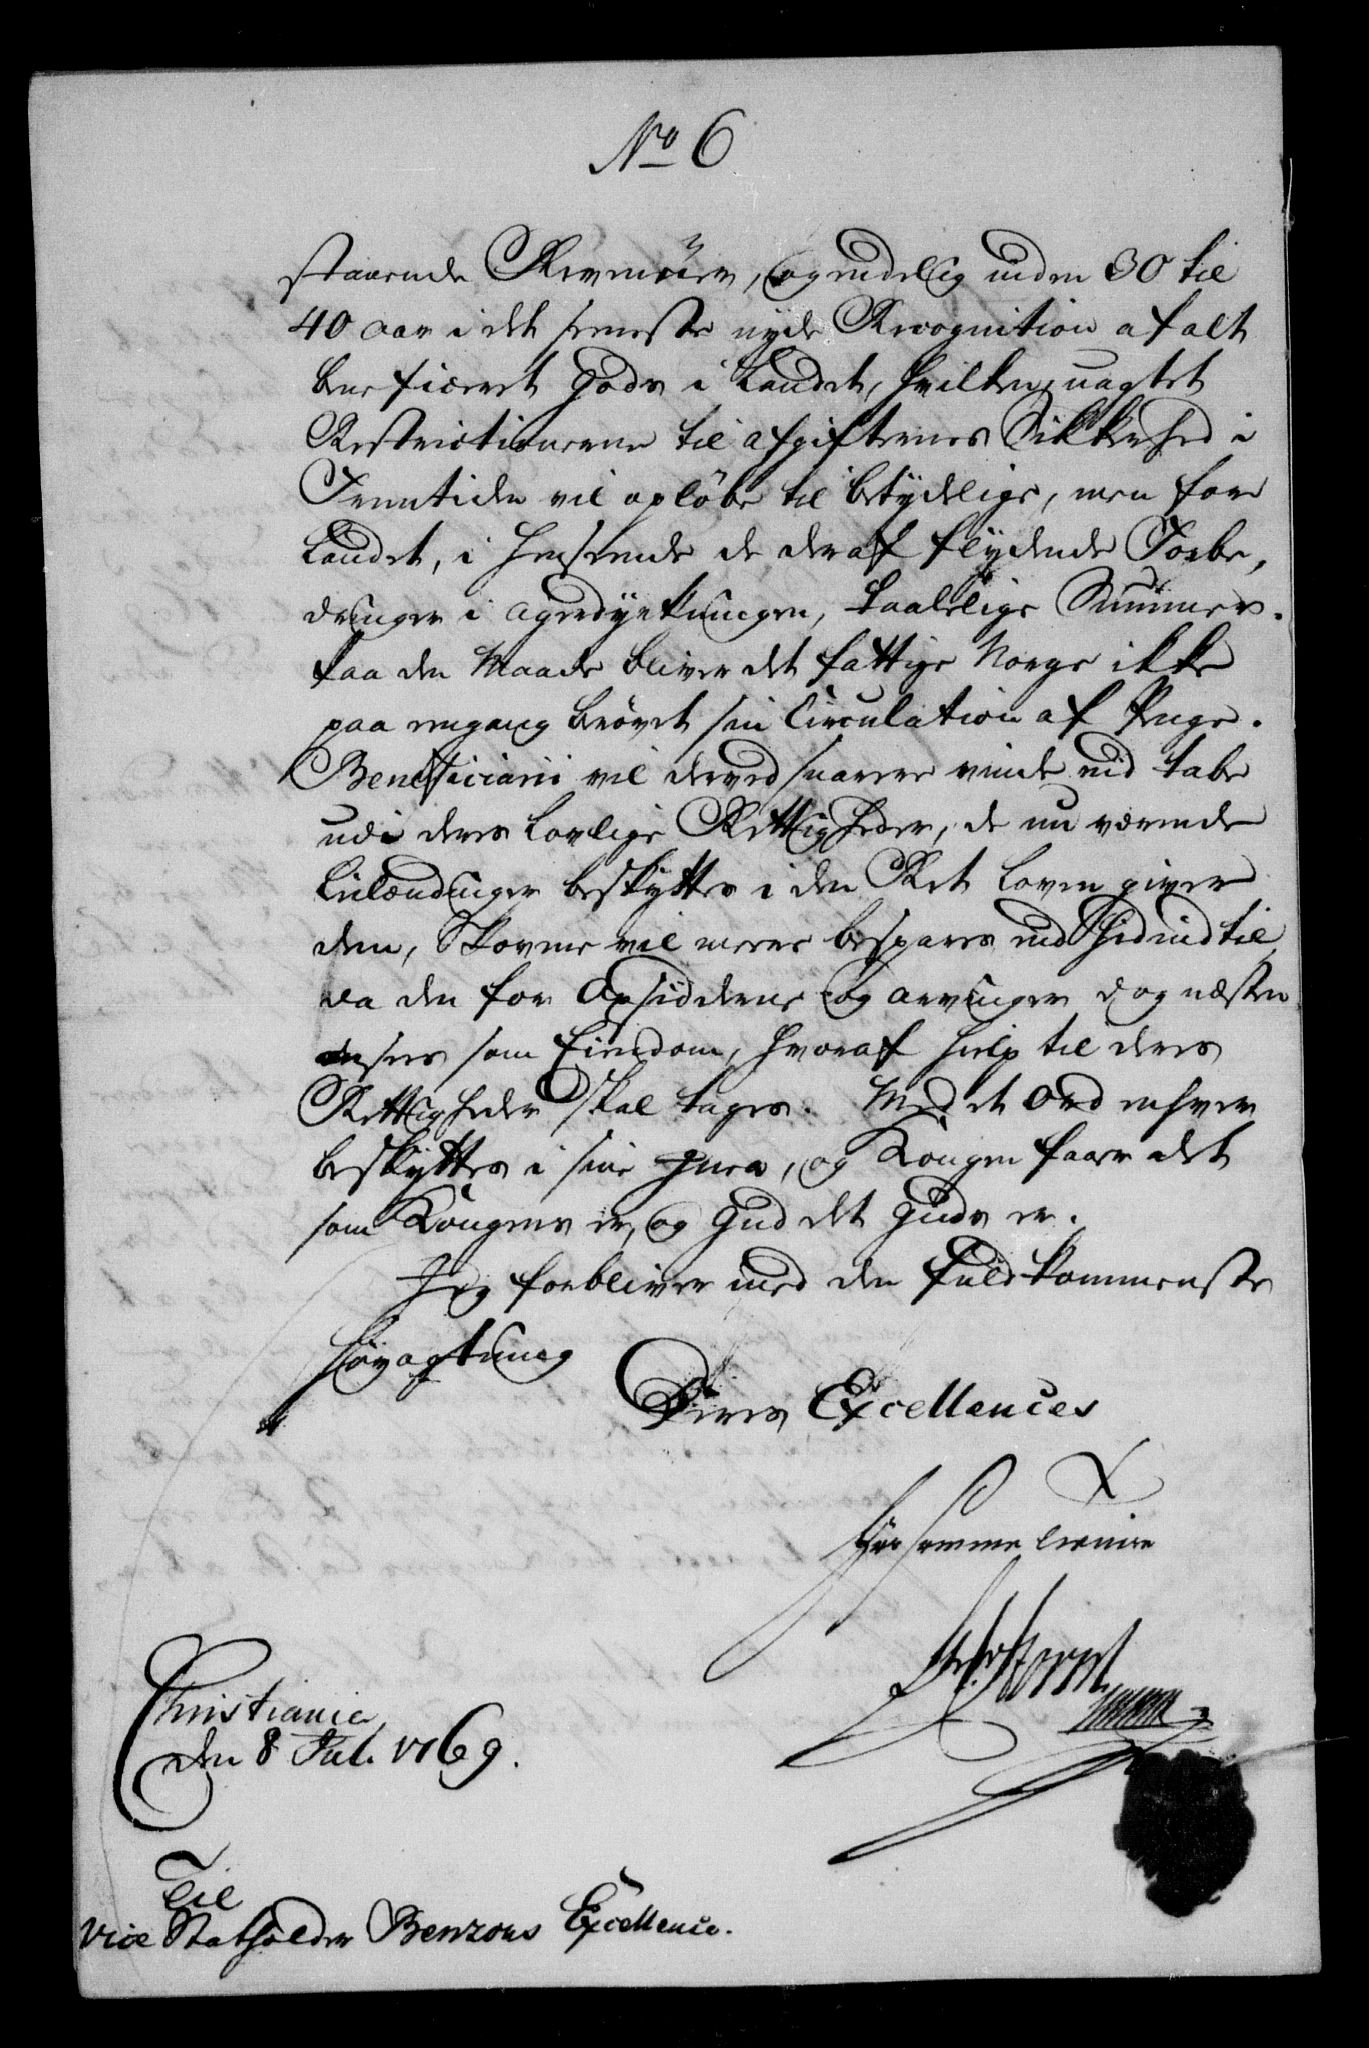 No 6
staaende Revenüer, og endelig inden 30 til
40 aar i det seneste nyde Recognition af alt
beneficeret Gods i Landet, hvilken uagtet
Restrictionerne til afgifternes Sikkerhed i
Fremtiden vil opløbe til betydelige, men for
Landet, i henseende de deraf flydende Forbe,
dringer i agerdyrkningen, taalelige Summer.
Paa den Maade bliver det fattige Norge ikke
paa engang berøvet sin Circulation af Penge.
Beneficiarii vil derved snarere vinde end tabe
udi deres lovlige Rettigheder, de nu værende
Leilændinger beskyttes i den Ret Loven giver
dem, Skovene vil mere bespares end hidindtil,
da den for Opsidderne og arvinger dog næsten
ansees som Eiendom, hvoraf hielp til deres
Rettigheder skal tages. Med et Ord enhver
beskyttes i sine, og Kongen faaer det
som Kongens er, og Gud det Guds er.
Jeg forbliver med den fuldkommenste
Høyagtning
Deres Excellences
tienere
Christiania
den 8 Jul. 1769.
Til
Vice Statholder Benzons Excellence.